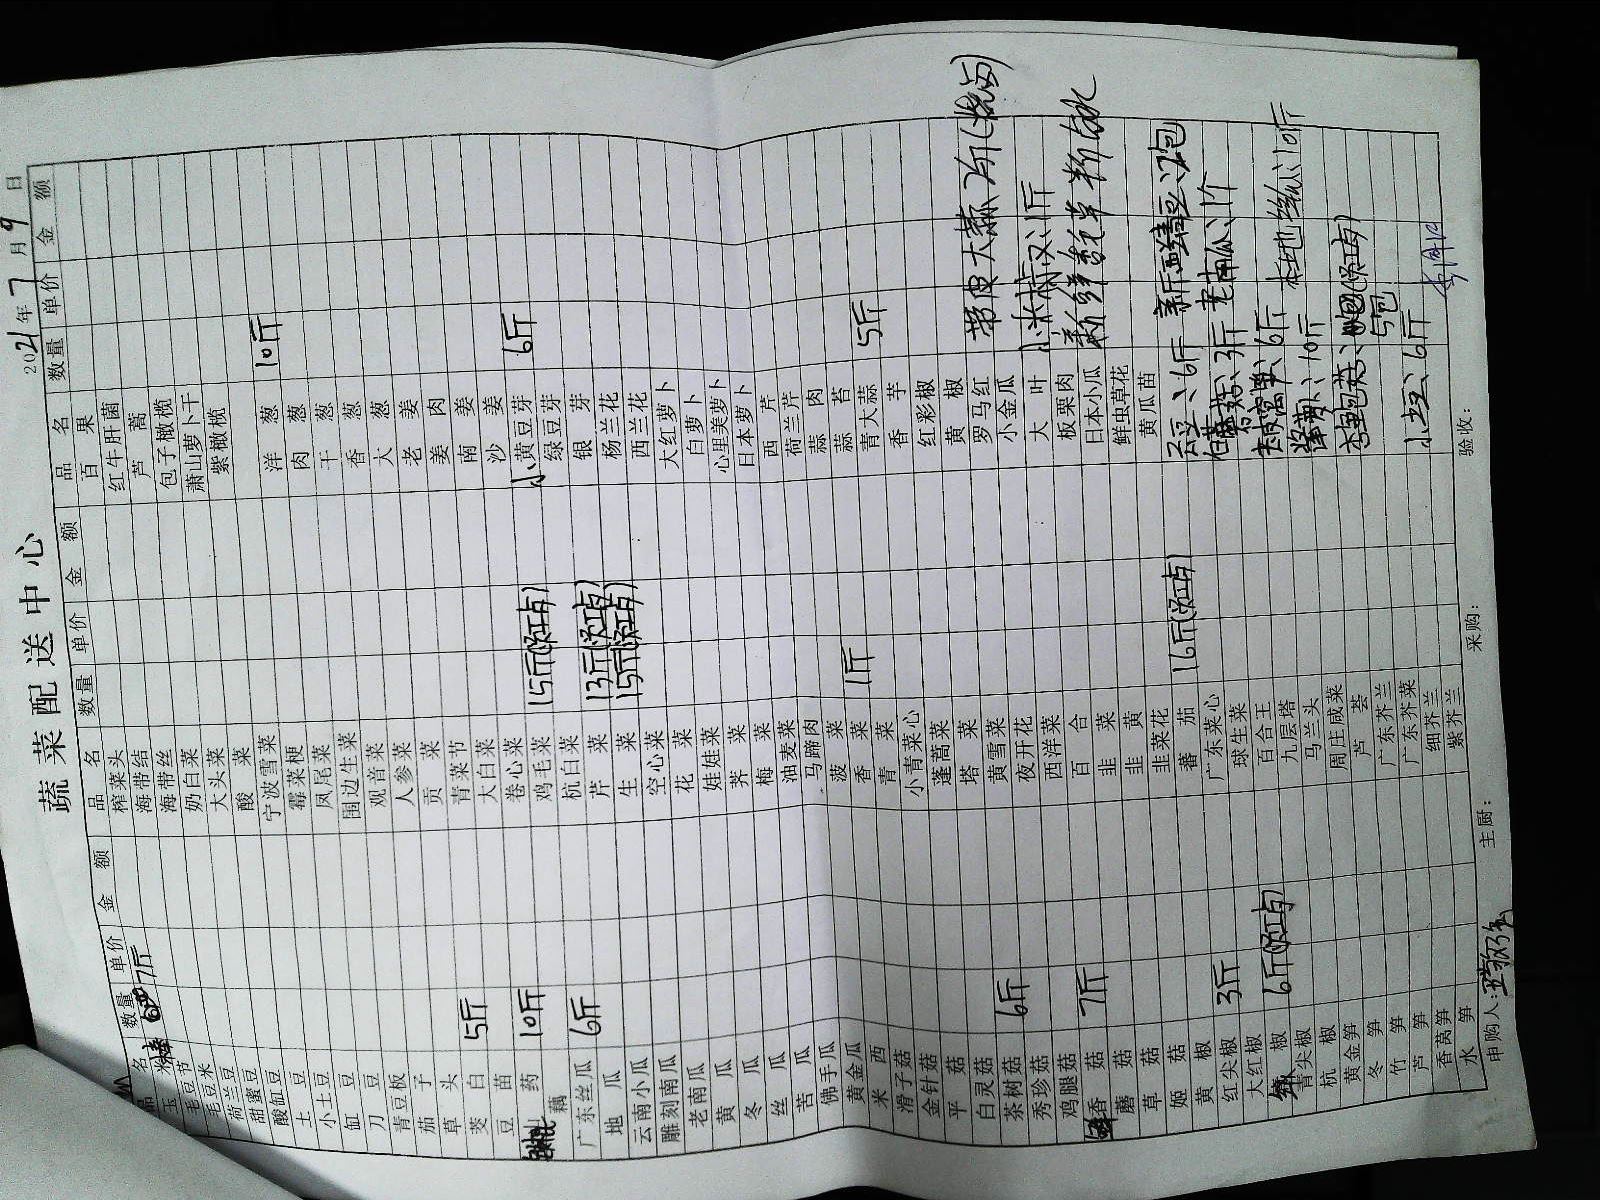 蔬菜配送中心
2021年7月9日
品名 数量 单价 金额 品名 数量 单价 金额 品名 数量 单价 金额
玉米棒 7斤
毛豆节
毛豆米
荷兰豆
甜蜜豆
酸缸豆
土豆
小土豆
缸豆
刀豆
青豆板
茄子
草头
茭白 5斤
豆苗
山药 10斤
藕
广东丝瓜 6斤
地瓜
云南小瓜
雕刻南瓜
老南瓜
黄瓜
冬瓜
丝瓜
苦瓜
佛手瓜
黄金瓜
米西
滑子菇
金针菇
平菇
白灵菇
茶树菇 6斤
秀珍菇
鸡腿菇
鲜香菇 7斤
蘑菇
草菇
姬菇
黄椒
红尖椒 3斤
大红椒
青尖椒 6斤
杭椒
黄金笋
冬笋
竹笋
芦笋
香莴笋
水笋
榨菜头
海带结
海带丝
奶白菜
大头菜
酸菜
宁波雪菜
霉菜梗
凤尾菜
围边生菜
观音菜
人参菜
贡菜
青菜节
大白菜
卷心菜 15斤
鸡毛菜
杭白菜
芹菜 13斤
生菜 15斤
空心菜
花菜
娃娃菜
荠菜
梅菜
油麦菜
马蹄肉
菠菜
香菜 1斤
青菜
小青菜心
蓬蒿菜
塔菜
黄雪菜
夜开花
西洋菜
百合
韭菜
韭黄
韭菜花
蕃茄 16斤
广东菜心
球生菜
百合王
九层塔
马兰头
周庄咸菜
芦荟
广东芥兰
广东芥菜
细芥兰
紫芥兰
百果
红牛肝菌
芦蒿
包子橄榄
萧山萝卜干
紫橄榄
洋葱 10斤
肉葱
干葱
香葱
大葱
老姜
姜肉
南姜
沙姜
小黄豆芽 6斤
绿豆芽
银芽
杨兰花
西兰花
大红萝卜
白萝卜
心里美萝卜
日本萝卜
西芹
荷兰芹
蒜肉
蒜苔
青大蒜 5斤
香芋
红彩椒
黄椒
罗马红
小金瓜
大叶
板栗肉
日本小瓜
鲜虫草花
黄瓜苗
带皮大蒜
小米椒 1斤
6斤
3斤 老南瓜、1个
6斤
10斤 本地丝瓜10斤
5包
小土豆、6斤
申购人: 主厨: 采购: 验收: